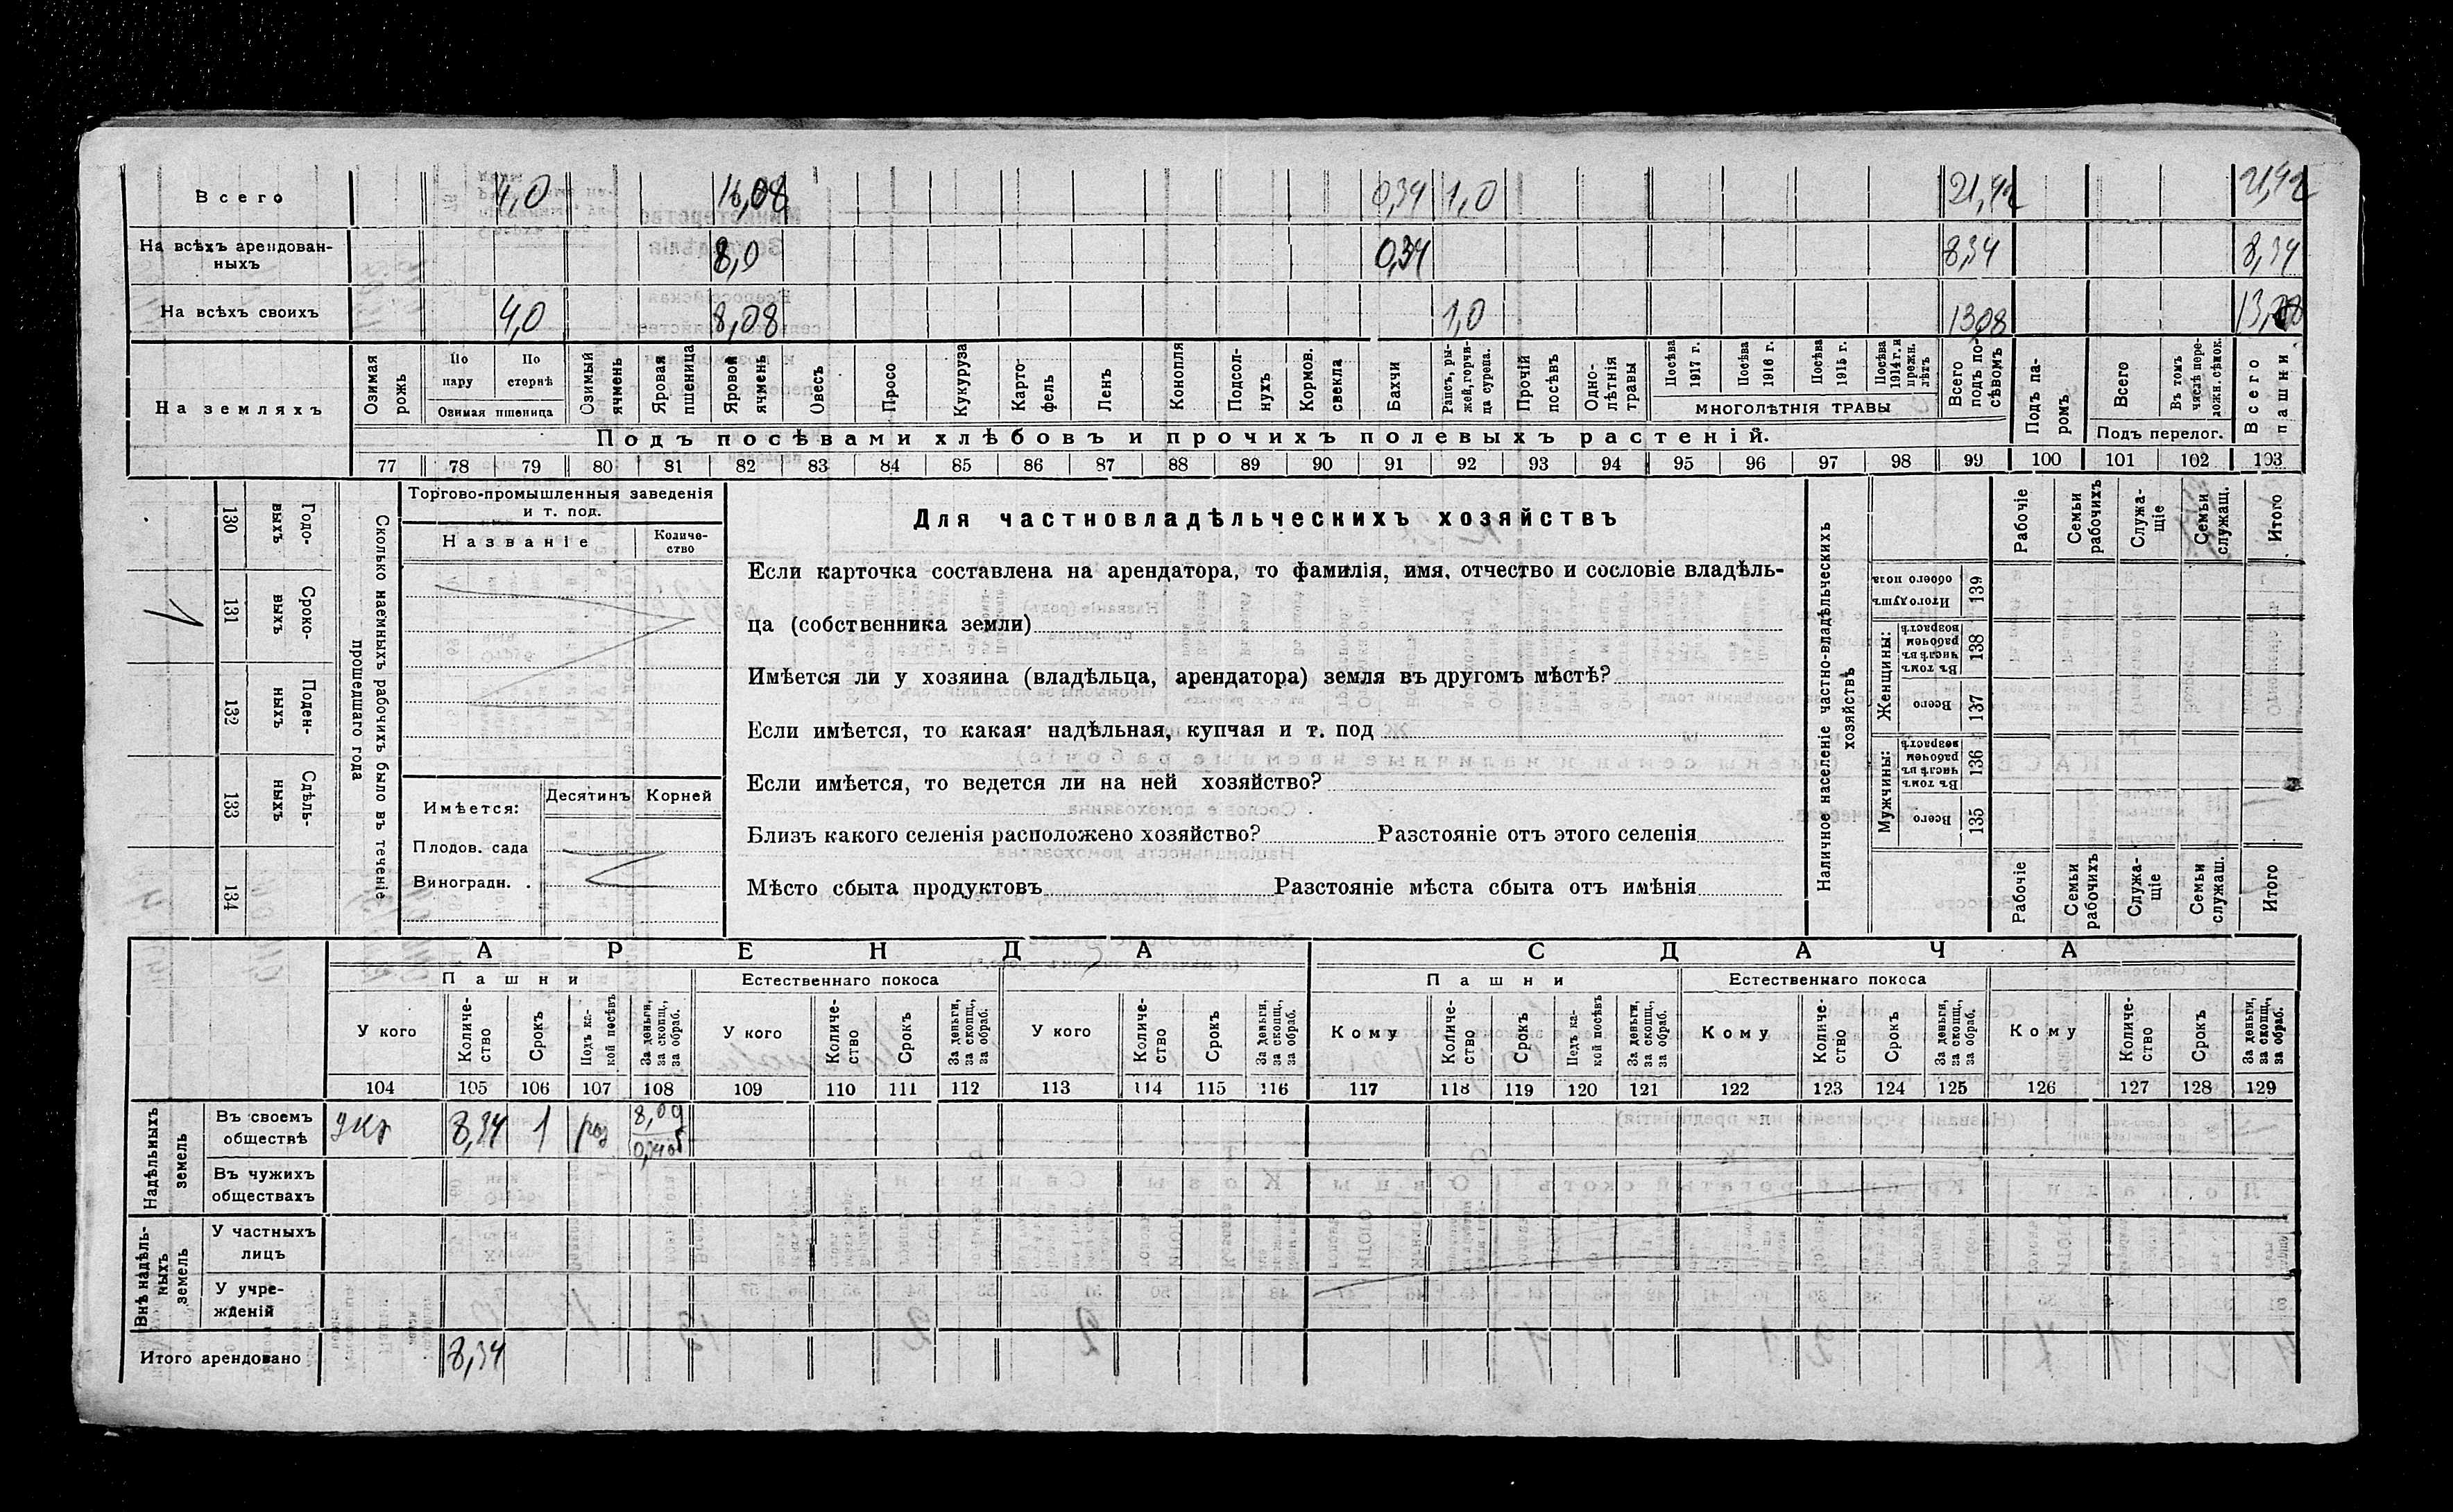 Всего 4,0 16,08 0,34 1,0 21,42 21,42
На всѣхъ арендован-
ныхъ 8,0 0,34 8,34 8,34
На всѣхъ своихъ 4,0 8,08 1,0 13,08 13,08
На земляхъ
Озимая рожь
По пару
По стернѣ
Озимая пшеница
Озимый ячмень
Яровая пшеница
Яровой ячмень
Овесъ
Просо
Кукуруза
Карто-
фель
Ленъ
Конопля
Подсол-
нухъ
Кормов.
свекла
Бахчи
Рапсъ, ры-
жей, горчи-
ца сурепа.
Прочій
посѣвъ
Одно-
лѣтнія
травы
Посѣва
1917 г.
Посѣва
1916 г.
Посѣва
1915 г.
Посѣва
1914 г. и
прежн.
лѣтъ
МНОГОЛѢТНІЯ ТРАВЫ
Всего
подъ по-
сѣвомъ
Подъ па-
ромъ
Всего
Въ томъ
числѣ пере-
дожн. сѣнок.
Подъ перелог.
Всего
пашни
Подъ посѣвами хлѣбовъ и прочихъ полевыхъ растеній.
77 78 79 80 81 82 83 84 85 86 87 88 89 90 91 92 93 94 95 96 97 98 99 100 101 102 103
Сколько наемныхъ рабочихъ было въ теченіе
прошедшаго года
Годо-
выхъ
130
Сроко-
выхъ
131
1
Поден-
ныхъ
132
Сдѣль-
ныхъ
133
134
Торгово-промышленныя заведенія
и т. под.
Названіе
Количе-
ство
Имѣется:
Десятинъ Корней
Плодов. сада
Виноградн. .
Для частновладѣльческихъ хозяйствъ
Если карточка составлена на арендатора, то фамилія, имя, отчество и сословіе владѣль-
ца (собственника земли)
Имѣется ли у хозяина (владѣльца, арендатора) земля въ другомъ мѣстѣ?
Если имѣется, то какая надѣльная, купчая и т. под
Если имѣется, то ведется ли на ней хозяйство?
Близъ какого селенія расположено хозяйство? Разстояніе отъ этого селенія
Мѣсто сбыта продуктовъ Разстояніе мѣста сбыта отъ имѣнія
Наличное населеніе частно-владѣльческихъ
хозяйствъ
Рабочіе
Семьи
рабочихъ
Служа-
щіе
Семьи
служащ.
Итого
Итого душъ
обоего пола
139
Женщины:
Въ томъ
числѣ въ
рабочем
возрастѣ
138
Всего
137
Мужчины:
Въ томъ
числѣ въ
рабочем
возрастѣ
136
Всего
135
Рабочіе
Семьи
рабочихъ
Служа-
щіе
Семьи
служащ.
Итого
АРЕНДА СДАЧА
Пашни Естественнаго покоса Пашни Естественнаго покоса
У кого
Количе-
ство
Срокъ
Подъ ка-
кой посѣвъ
За деньги,
за скопщ.,
за обраб.
У кого
Количе-
ство
Срокъ
За деньги,
за скопщ.,
за обраб.
У кого
Количе-
ство
Срокъ
За деньги,
за скопщ.,
за обраб.
Кому
Количе-
ство
Срокъ
Подъ ка-
кой посѣвъ
За деньги,
за скопщ.,
за обраб.
Кому
Количе-
ство
Срокъ
За деньги,
за скопщ.,
за обраб.
Кому
Количе-
ство
Срокъ
За деньги,
за скопщ.,
за обраб.
104 105 106 107 108 109 110 111 112 113 114 115 116 117 118 119 120 121 122 123 124 125 126 127 128 129
Надѣльныхъ
земель
Въ своемъ
обществѣ 8,34 1
Въ чужихъ
обществахъ
Внѣ надѣль-
ныхъ
земель
У частныхъ
лицъ
У учре-
жденій
Итого арендовано 8,34